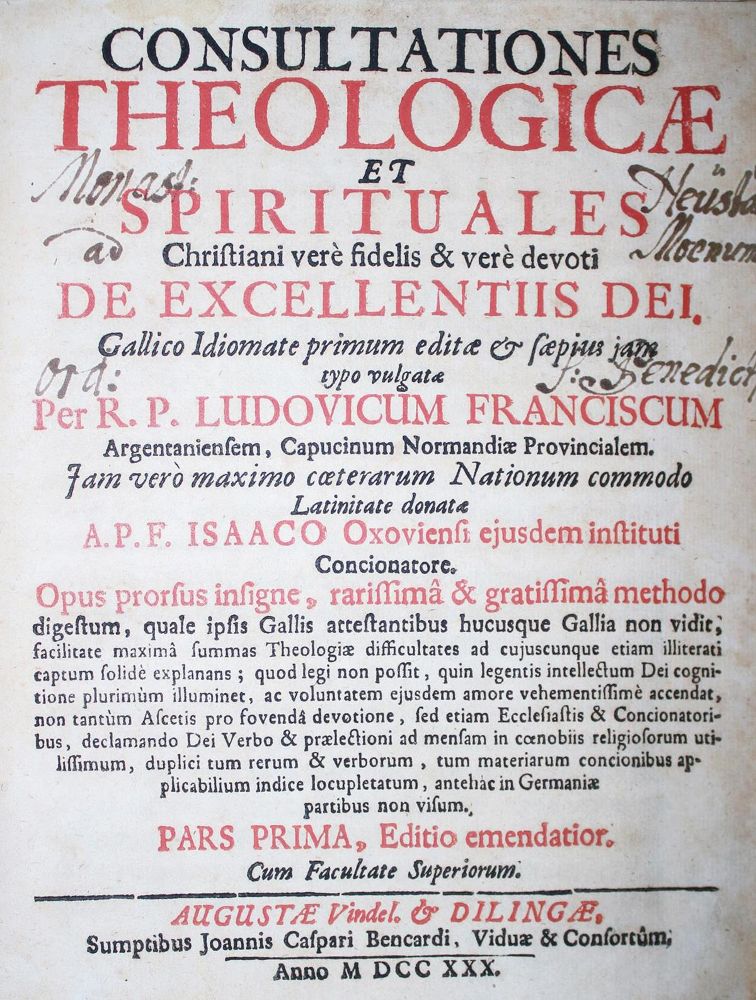 CONSULTATIONES
THEOLOGICÆ
ET
Monast:
SPIRITUALES
Heüsta
ad
Chriſtiani verè fidelis & verè devoti
Moenum
DE EXCELLENTIIS DEI.
Gallico Idiomate primum editæ & ſæpius jam
typo vulgatæ
ord:
Benedict
Per R. P. LUDOVICUM FRANCISCUM
Argentanienſem, Capucinum Normandiæ Provincialem.
Jam verò maximo cœterarum Nationum commodo
Latinitate donatæ
A. P. F. ISAACO Oxovienſi ejusdem inſtituti
Concionatore.
Opus prorſus inſigne, rariſſimâ & gratiſſimâ methodo
digeſtum, quale ipſis Gallis atteſtantibus hucusque Gallia non vidit;
facilitate maximâ ſummas Theologiæ difficultates ad cujuscunque etiam illiterati
captum ſolidè explanans; quod legi non poſſit, quin legentis intellectum Dei cogni-
tione plurimùm illuminet, ac voluntatem ejusdem amore vehementiſſimè accendat,
non tantùm Aſcetis pro fovendâ devotione, ſed etiam Eccleſiaſtis & Concionatori-
bus, declamando Dei Verbo & prælectioni ad menſam in cœnobiis religioſorum uti-
liſſimum, duplici tum rerum & verborum, tum materiarum concionibus ap-
plicabilium indice locupletatum, antehàc in Germaniæ
partibus non viſum.
PARS PRIMA, Editio emendatior.
Cum Facultate Superiorum.
AUGUSTÆ Vindel. & DILINGÆ,
Sumptibus Joannis Caſpari Bencardi, Viduæ & Conſortûm,
Anno M DCC XXX.